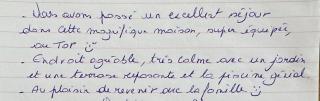 - Nous avons passé un excellent séjour
dans cette magnifique maison, super équipée,
au TOP
- Endroit agréable, très calme avec un jardin
et une terrasse reposante et la piscine génial
- Au plaisir de revenir avec la famille